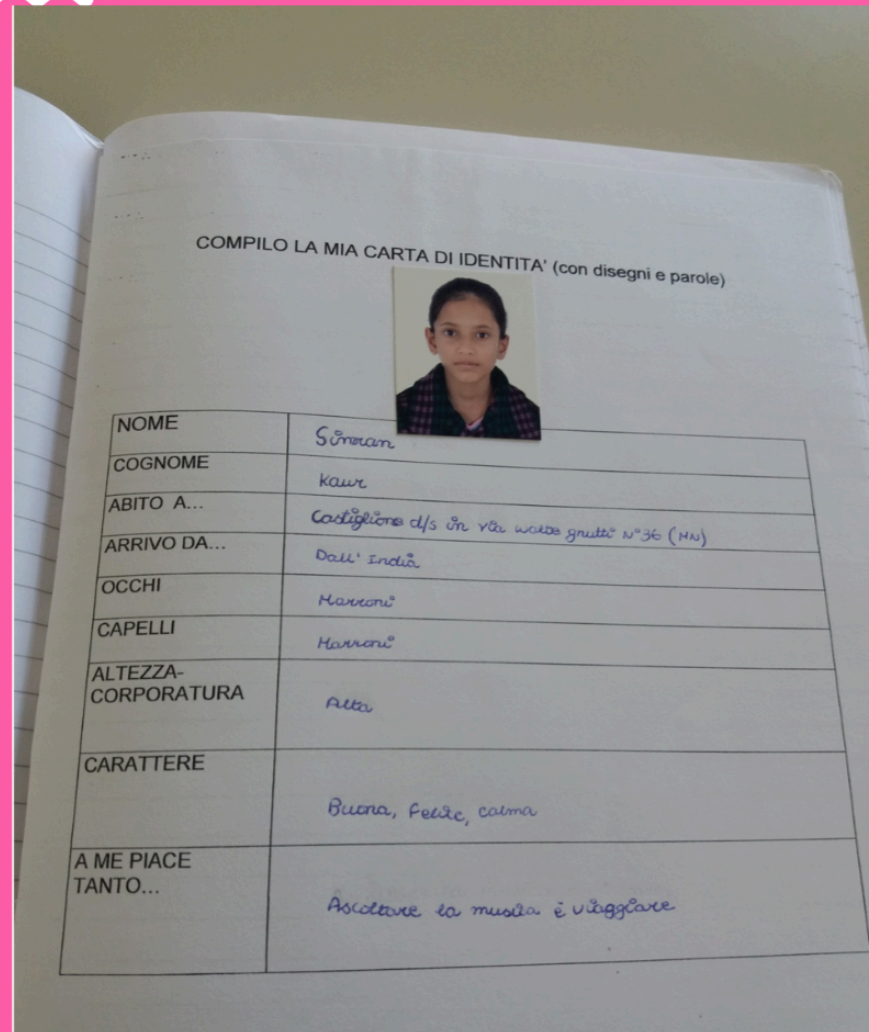 COMPILO LA MIA CARTA DI IDENTITA' (con disegni e parole)
NOME
Simran
COGNOME
Kaur
ABITO A...
Castiglione d/s in via gnutti N°36 (MN)
ARRIVO DA...
Dall' India
OCCHI
Marroni
CAPELLI
Marroni
ALTEZZA-
CORPORATURA
Alta
CARATTERE
Buona, Felic, calma
A ME PIACE
TANTO...
Ascoltare la musica è viaggiare